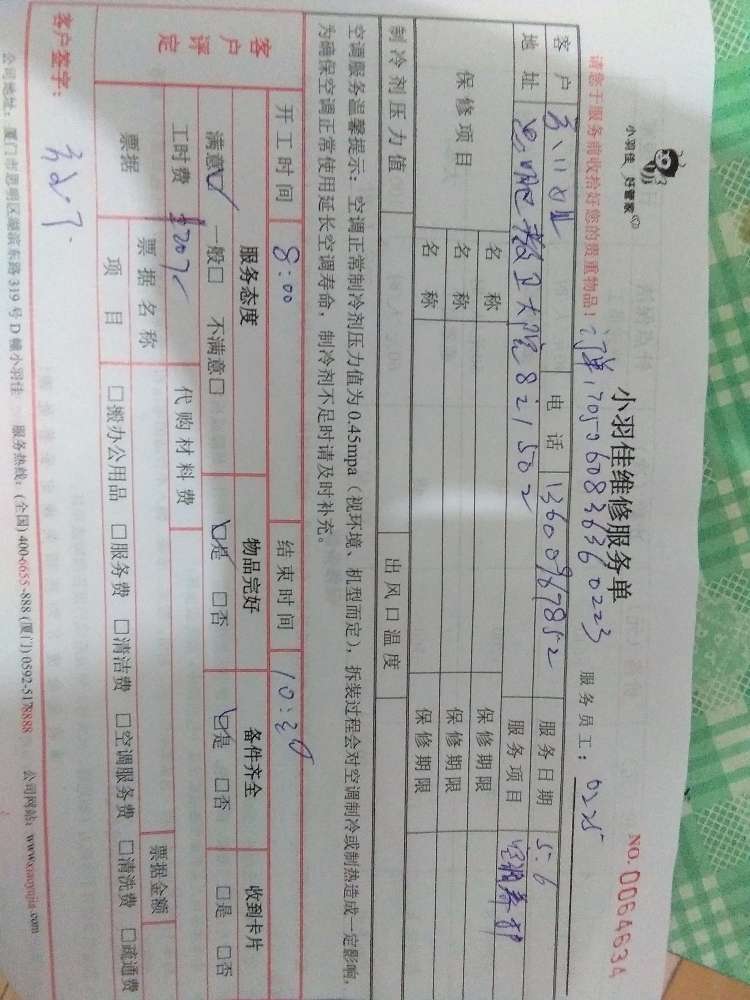 小羽佳 好管家
小羽佳维修服务单
NO.0064634
请您于服务前收拾好您的贵重物品！ 订单 服务员工：0225
客户 电话 13600987852 服务日期 5.6
地址 大院821502 服务项目 空调
保修项目 名称 保修期限
名称 保修期限
名称 保修期限
制冷剂压力值 出风口温度
空调服务温馨提示：空调正常制冷剂压力值为0.45mpa（视环境、机型而定），拆装过程会对空调制冷或制热造成一定影响，
为确保空调正常使用延长空调寿命，制冷剂不足时请及时补充。
客户评定
开工时间 8:00 结束时间 10:20
服务态度 物品完好 备件齐全 收到卡片
满意☑ 一般□ 不满意□ ☑是 □否 ☑是 □否 □是 □否
工时费 代购材料费
票据 票据名称 票据金额
项目 □搬办公用品 □服务费 □清洁费 □空调服务费 □清洗费 □疏通费
客户签字：
公司地址：厦门市思明区湖滨东路319号D幢小羽佳 服务热线：(全国) 400-6655-888 (厦门) 0592-5178888 公司网站：www.xiaoyujia.com